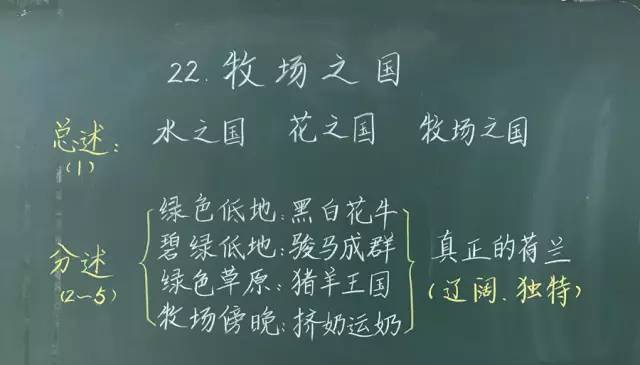 22.牧场之国
总述: 水之国 花之国 牧场之国
(1)
绿色低地:黑白花牛
碧绿低地:骏马成群
绿色草原:猪羊王国
牧场傍晚:挤奶运奶
分述
(2~5)
真正的荷兰
(辽阔、独特)